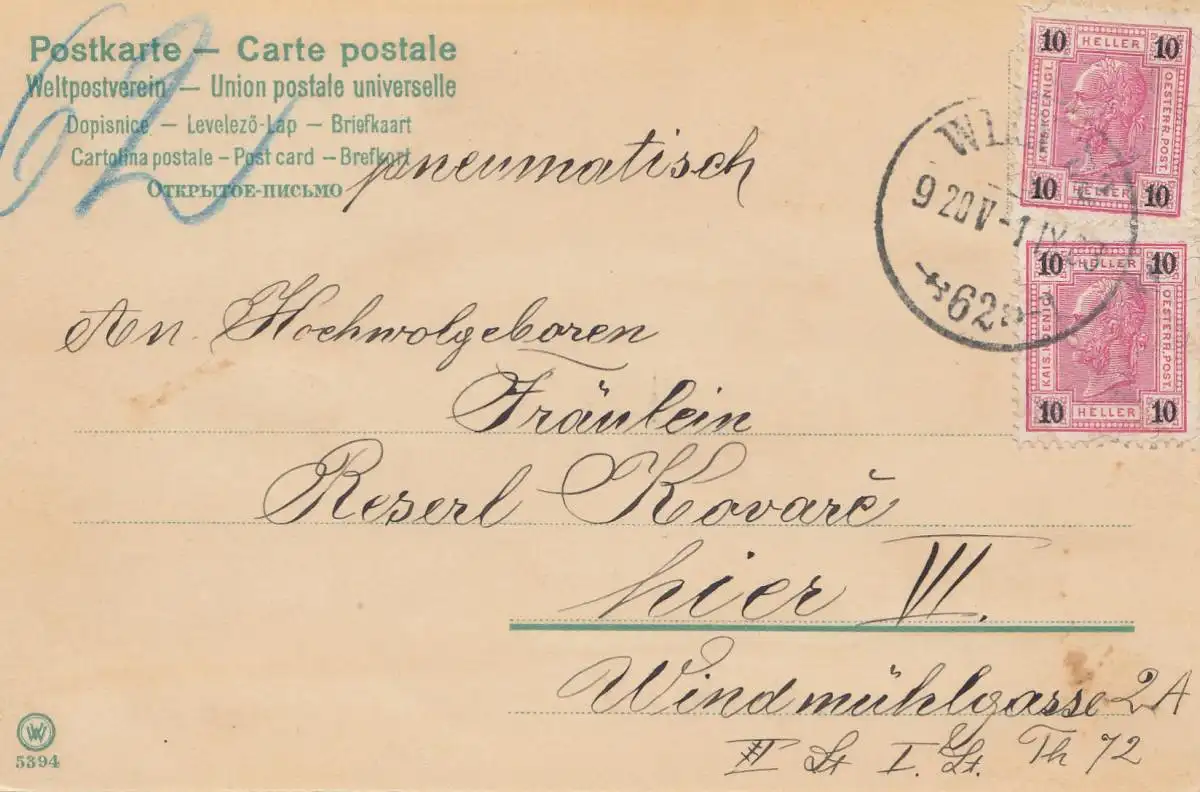 62
Postkarte — Carte postale
Weltpostverein — Union postale universelle
Dopisnice — Levelező-Lap — Briefkaart
Cartolina postale — Post card — Brefkort
ОТКРЫТОЕ-ПИСЬМО
pneumatisch
10 HELLER 10
KAIS. KOENIGL. OESTERR. POST.
10 HELLER 10
WIEN
9 20 V - 1 IX
62
10 HELLER 10
KAIS. KOENIGL. OESTERR. POST.
10 HELLER 10
An Hochwolgeboren
Fräulein
Reserl Kovarč
hier VI.
Windmühlgasse 2A
II St I. St. Th 72
W
5394